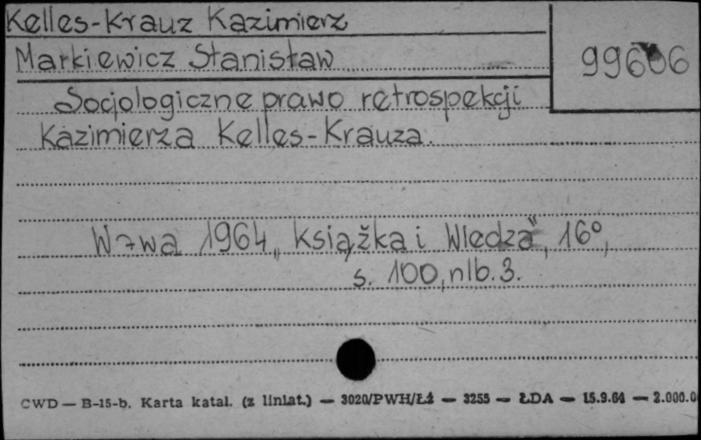 Kelles-Krauz Kazimierz
Markiewicz Stanisław
99606
Socjologiczne prawo retrospekcji
Kazimierza Kelles-Krauza.
W-wa 1964 „Książka i Wiedza”, 16°,
s. 100, nlb. 3.
CWD — B-15-b. Karta katal. (z liniat.) — 3020/PWH/Łź — 3255 — ŁDA — 15.9.64 — 2.000.0